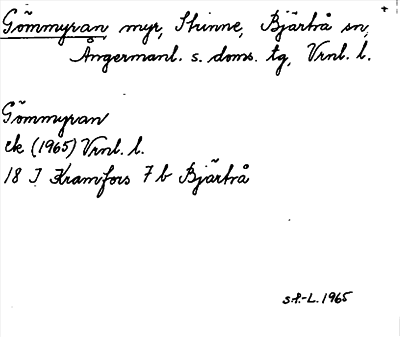 Gömmyran myr, Skinne, Bjärtrå sn,
Ångermanl. s. doms. tg, Vrnl. l.
Gömmyran
ek (1965) Vrnl. l.
18 I Kramfors 7 b Bjärtrå
s.f.-L. 1965